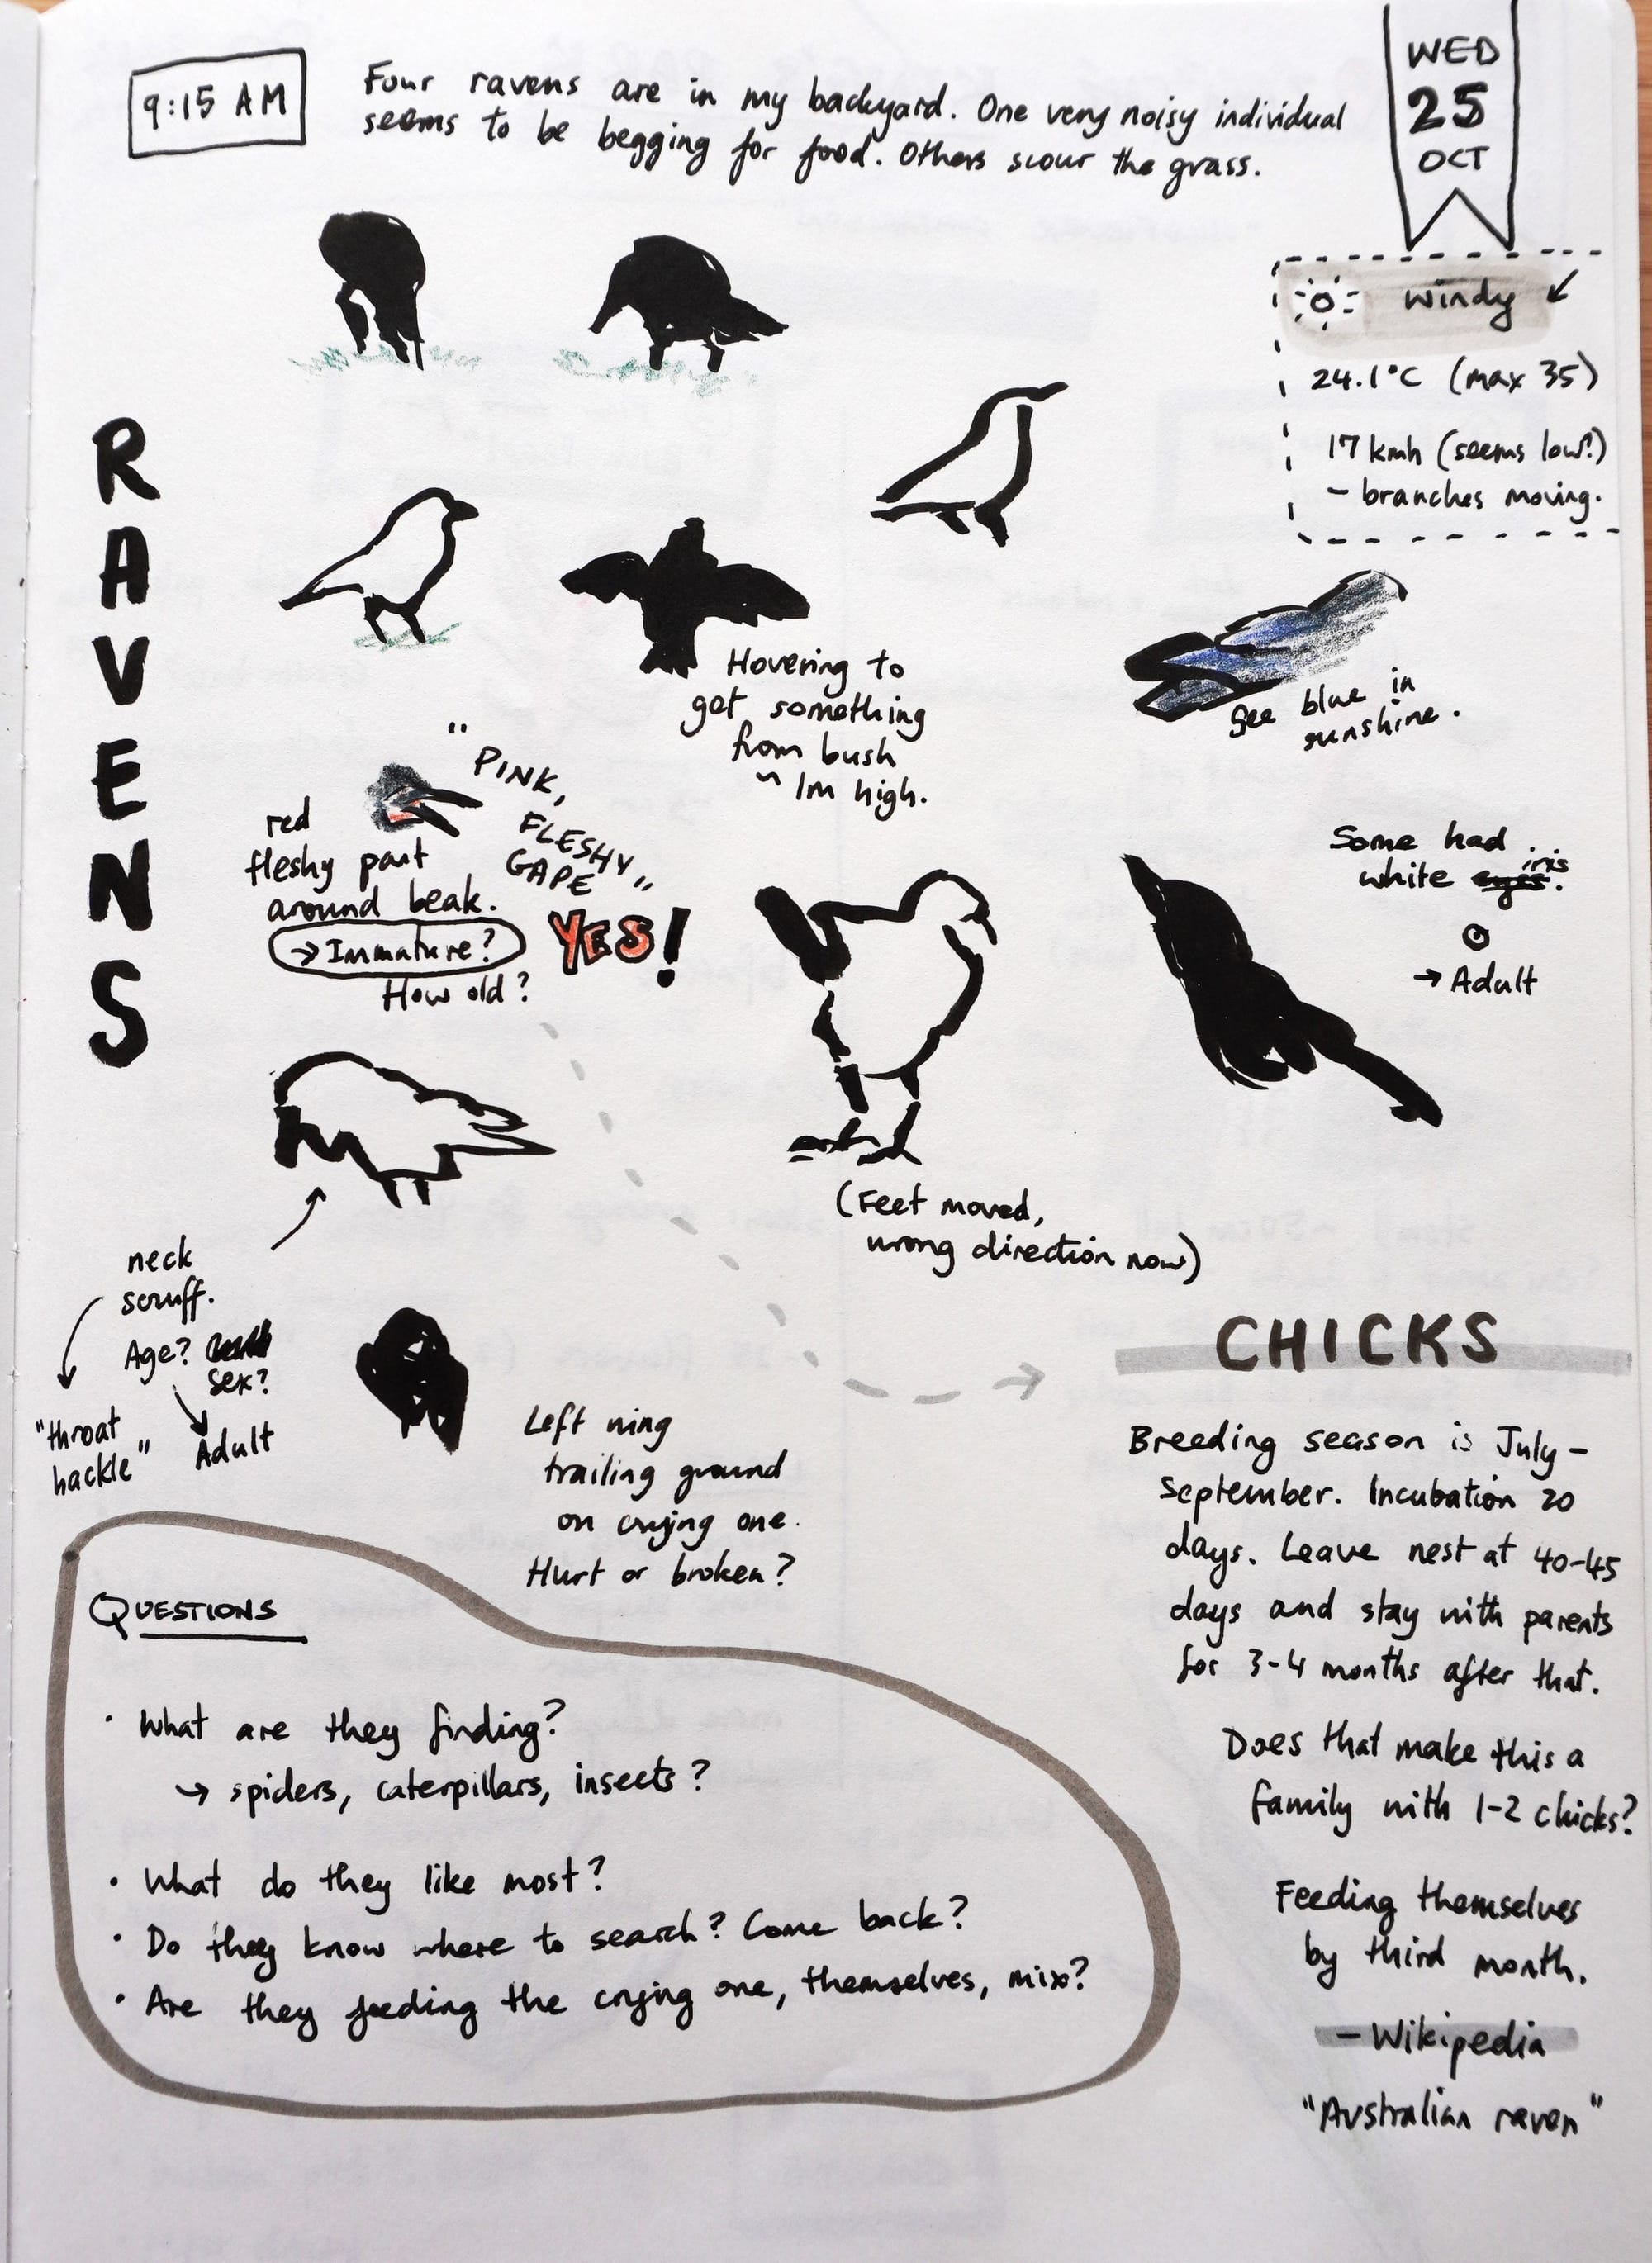 9:15 AM
Four ravens are in my backyard. One very noisy individual
seems to be begging for food. Others scour the grass.
WED
25
OCT
windy
24.1°C (max 35)
17 kmh (seems low?)
- branches moving.
RAVENS
Hovering to
get something
from bush
~ 1m high.
See blue in
sunshine.
"PINK,
FLESHY
GAPE"
red
fleshy part
around beak.
→ Immature?
How old?
YES!
Some had
white eyes iris.
→ Adult
(Feet moved,
wrong direction now)
neck
scruff.
Age?
Sex?
"throat
hackle"
Adult
Left wing
trailing ground
on crying one.
Hurt or broken?
CHICKS
Breeding season is July -
September. Incubation 20
days. Leave nest at 40-45
days and stay with parents
for 3-4 months after that.
Does that make this a
family with 1-2 chicks?
Feeding themselves
by third month.
- Wikipedia
"Australian raven"
QUESTIONS
· What are they finding?
→ spiders, caterpillars, insects?
· What do they like most?
· Do they know where to search? Come back?
· Are they feeding the crying one, themselves, mix?